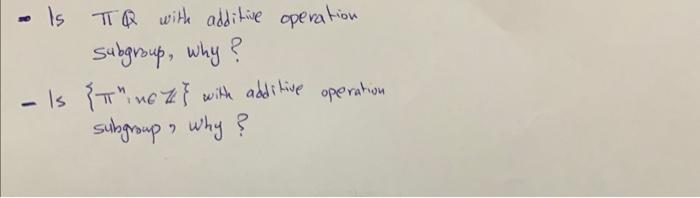 - Is πQ with additive operation
subgroup, why ?
- Is {πⁿ; n∈Z} with additive operation
subgroup, why ?